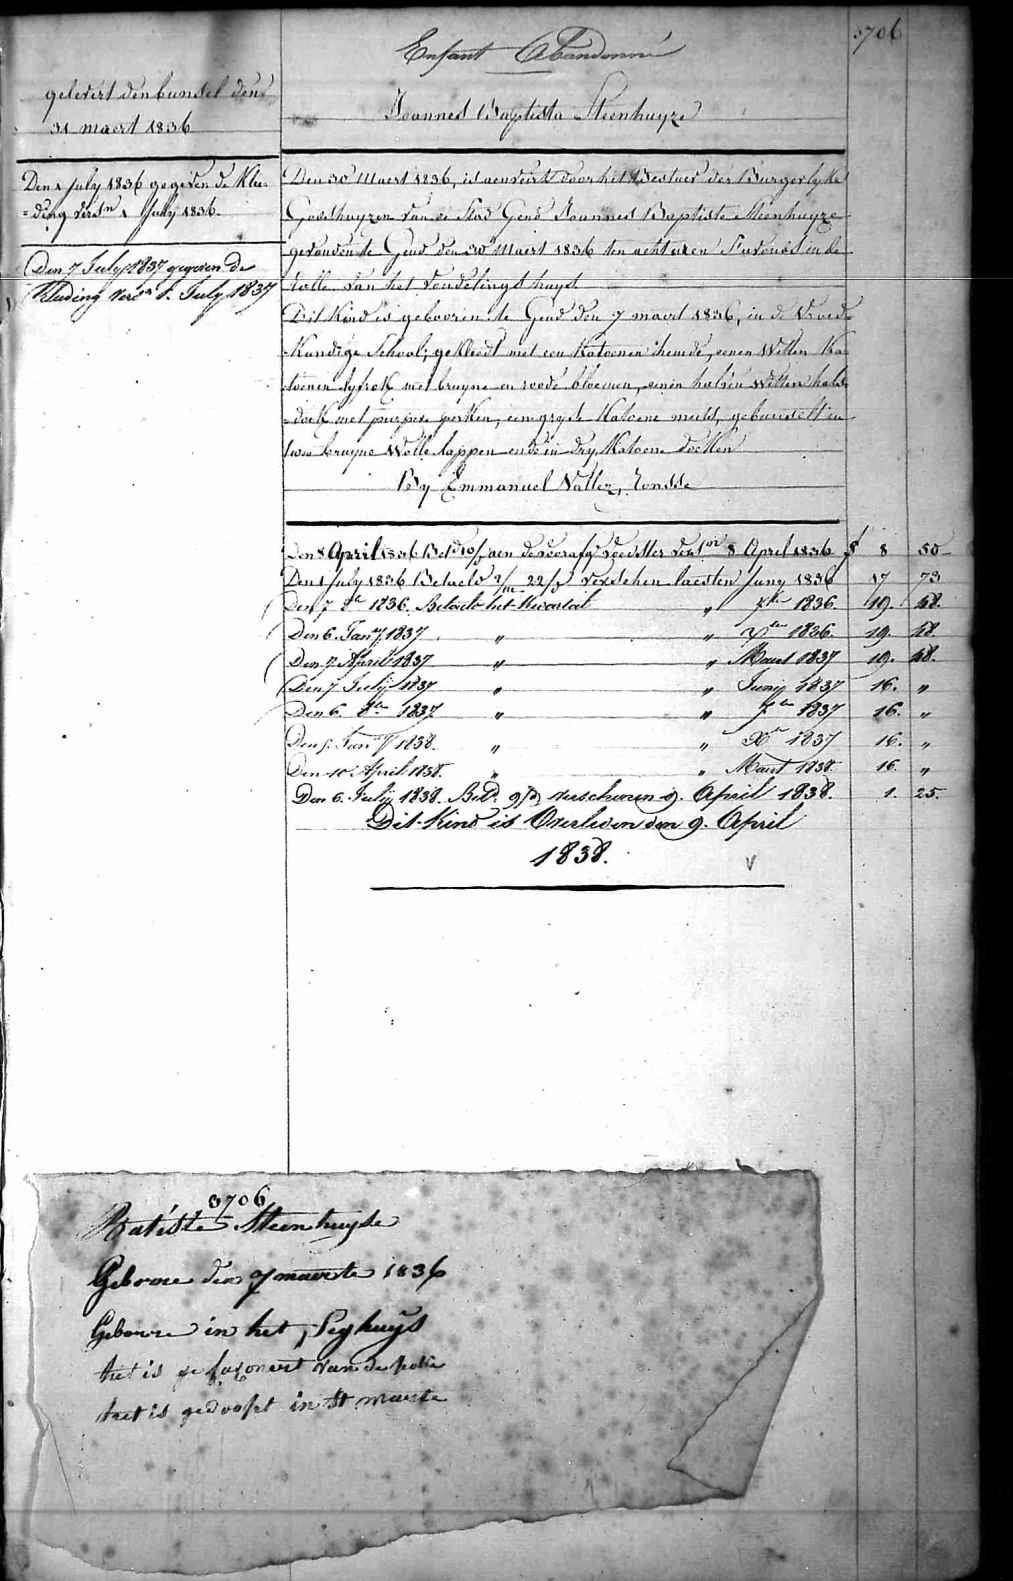 3706
Enfant Abandonné
Joannes Baptista Steenhuyze
gelevert den bundel den
31 maert 1836
Den 1 July 1836 gegeven de Klee=
=ding versn 1 July 1836.
Den 7 July 1837 gegeven de
Kleeding vers. 1. July 1837
Den 30 Maert 1836, is aenveird door het Bestuer der Burgerlyke
Godshuyzen van de Stad Gend Joannes Baptiste Steenhuyze
gevonden te Gend den 30 Maert 1836 ten acht uren s'avonds in de
rolle van het vondelings huys
Dit Kind is gebooren te Gend den 7 maert 1836, in de Vroed
Kundige School; gekleedt met een Katoenen hemde, eenen Witten Ka=
toenen slyfrok met bruyne en roode bloemen, eenen halven Witten hals
doek met purpere perken, eene gryse Katoene muts, gebundelt in
twee bruyne Wolle lappen ende in dry Katoene doeken
By Emmanuel Vallez, Ronsse
Den 8 April 1836 Bet. 10/ aen de voorafg. voedster vers. 8 April 1836 8 50
Den 1 July 1836 Betaeld 2/m 22/ verschenen laesten Juny 1836 17 73
Den 7 8e 1836. Betaeld het Kwartael " 7bre 1836. 19. 48.
Den 6. Jany 1837 " " Xbre 1836. 19. 48
Den 7. April 1837 " " Maert 1837 19. 48.
Den 7 July 1837 " " Juny 1837 16. "
Den 6. 8bre 1837. " " 7bre 1837 16. "
Den 5. Jany 1838. " " Xbre 1837 16. "
Den 10. April 1838. " " Maert 1838. 16. "
Den 6. July 1838. Bet. 9/ verschenen 9. April 1838. 1. 25.
Dit Kind is Overleden den 9. April
1838.
V
3706
Batiste Steenhuyse
Geboore den 7 maerte 1836
Geboore in het
het is van de
het is gedoopt in St